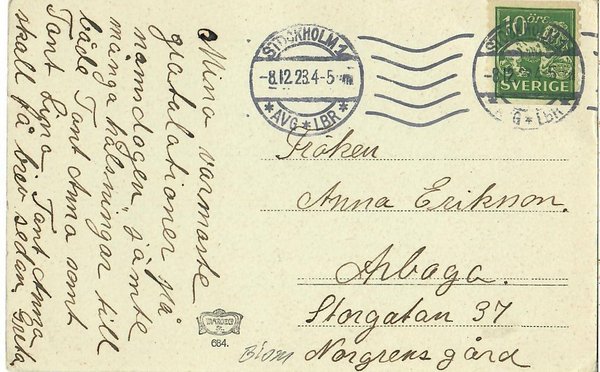 Mina varmaste
gratulationer på
namnsdagen, jämte
många hälsningar till
både Tant Anna samt
Tant Lyna. Tant Anna
skall få brev sedan, Greta
STOCKHOLM 1
-8.12.23.4-5
* AVG * LBR *
10 öre
SVERIGE
Fröken
Anna Erikson.
Arboga.
Storgatan 37
Norgrens gård
684.